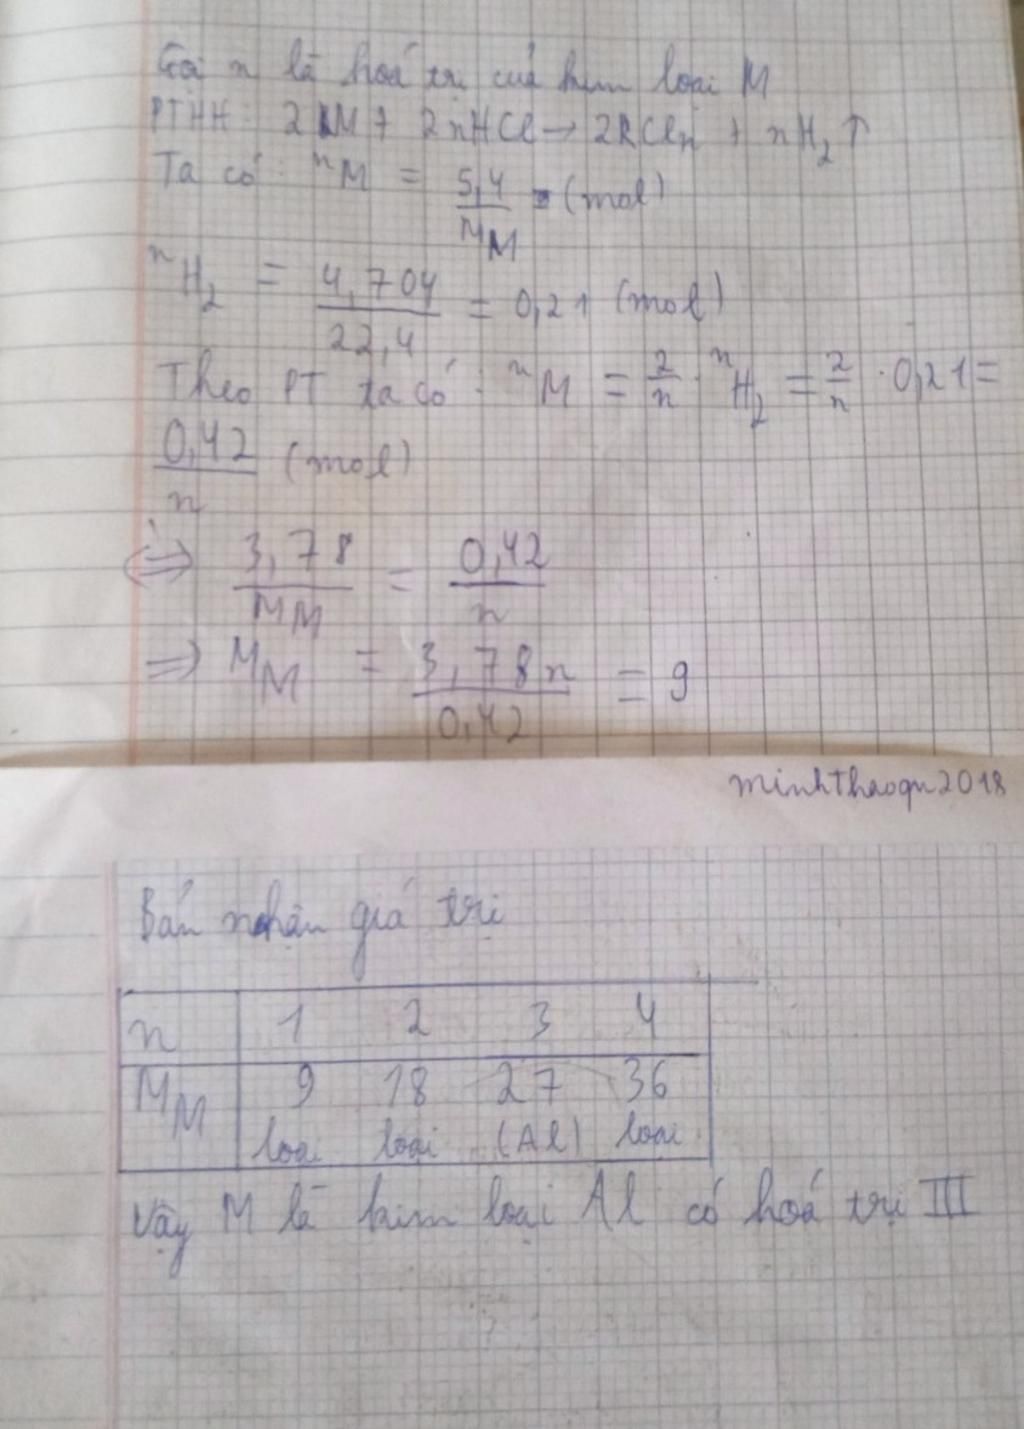 Gọi n là hoá trị của kim loại M
PTHH: 2M + 2nHCl → 2RCln + nH2 ↑
Ta có: nM = 5,4/MM (mol)
nH2 = 4,704/22,4 = 0,21 (mol)
Theo PT ta có: nM = 2/n . nH2 = 2/n . 0,21 =
0,42/n (mol)
⇔ 3,78/MM = 0,42/n
⇒ MM = 3,78n/0,42 = 9
minhthaoqn2018
Bản nhận giá trị
n 1 2 3 4
MM 9 18 27 36
loại loại (Al) loại
Vậy M là kim loại Al có hoá trị III